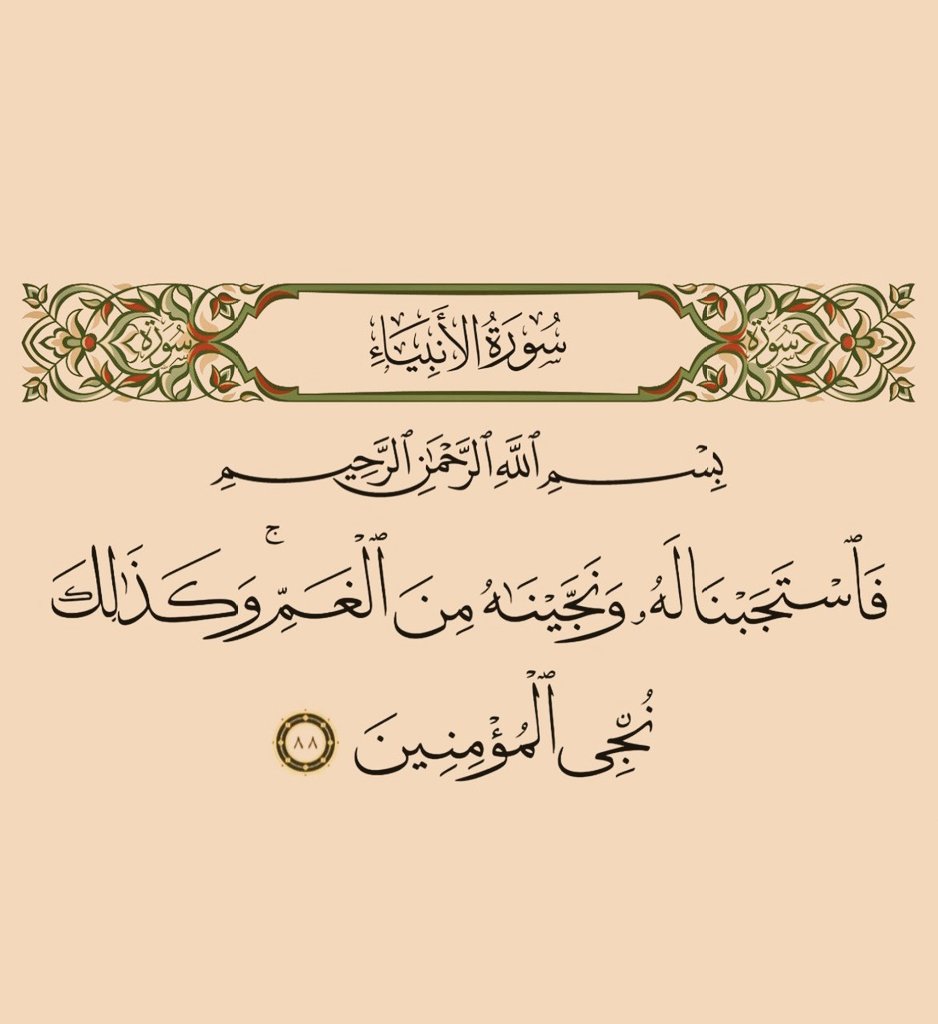 سُورَةُ الأَنبِيَاءِ
سُورَة
سُورَة
بِسْمِ ٱللَّهِ ٱلرَّحْمَٰنِ ٱلرَّحِيمِ
فَٱسْتَجَبْنَا لَهُۥ وَنَجَّيْنَٰهُ مِنَ ٱلْغَمِّ ۚ وَكَذَٰلِكَ
نُۨجِى ٱلْمُؤْمِنِينَ ٨٨